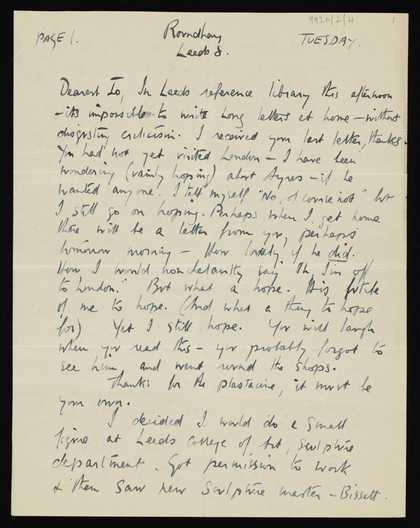 9921/2/4
1
PAGE 1.
Roundhay
Leeds 8.
TUESDAY.
Dearest Jo, In Leeds reference library this afternoon
– its impossible to write long letters at home – without
disgusting criticism. I received your last letter, thanks.
You had not yet visited London – I have been
wondering (vainly hoping) about Ayres – if he
wanted anyone. I tell myself "No, of course not" but
I still go on hoping. Perhaps when I get home
there will be a letter from you, perhaps
tomorrow morning – How lovely if he did.
How I would nonchalantly say "Oh I'm off
to London." But what a hope. It is futile
of me to hope. (And what a thing to hope
for) Yet I still hope. You will laugh
when you read this – you probably forgot to
see him, and went round the shops.
Thanks for the plastacine, it must be
your own.
I decided I would do a small
figure at Leeds College of Art, sculpture
department. Got permission to work
& then saw new sculpture master – Bissett.